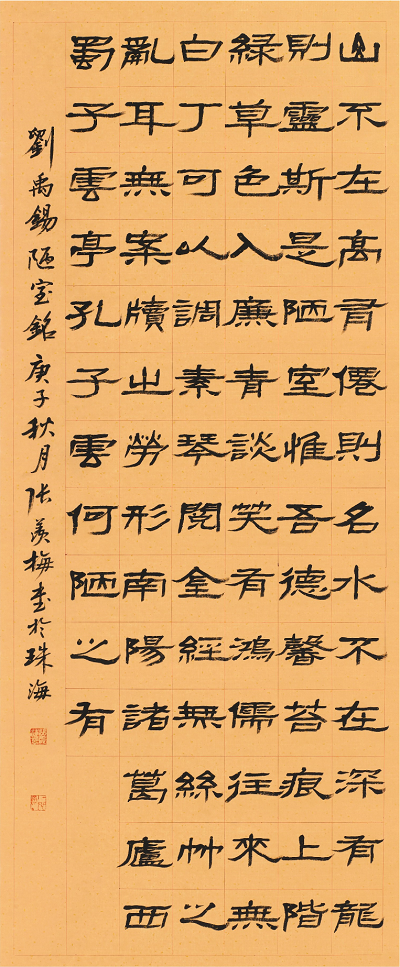 山不在高有僊則名水不在深有龍
則靈斯是陋室惟吾德馨苔痕上階
綠草色入廉青談笑有鴻儒往來無
白丁可以調素琴閱金經無絲竹之
亂耳無案牘之勞形南陽諸葛廬西
蜀子雲亭孔子雲何陋之有
劉禹錫陋室銘庚子秋月张羨梅書於珠海